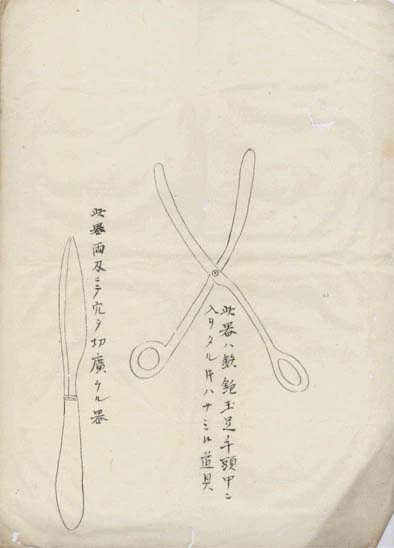 此器ハ鉄鉋玉足手頭甲ニ
入リタル片ハサミ道具
此器両刃ニテ穴ヲ切廣ケル器